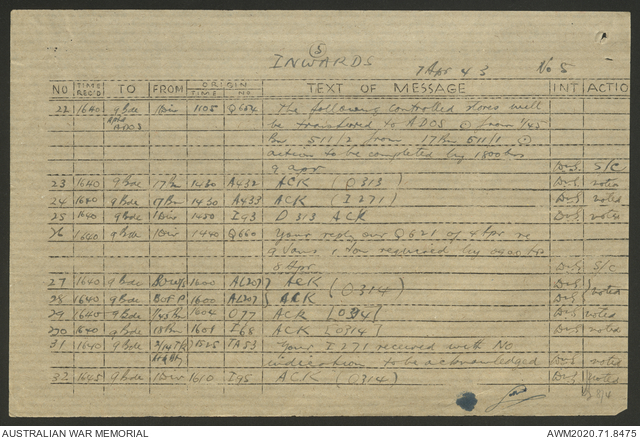 5
INWARDS 7 Apr 43 No 5
NO TIME REC'D TO FROM ORIGIN TIME NO. TEXT OF MESSAGE INT ACTIO
22 1640 9 Bde 1 Div 1105 Q654 The following controlled stores will
ADOS be transferred to ADOS from 1/45
Bn 511/2 from 17 Bn 511/1
action to be completed by 1800 hrs
9 Apr S/C
23 1640 9 Bde 17 Bn 1430 A432 ACK (O313) noted
24 1640 9 Bde 17 Bn 1430 A433 ACK (I271) noted
25 1640 9 Bde 1 Div 1450 I93 O313 ACK noted
26 1640 9 Bde 1 Div 1440 Q660 Your reply our Q621 of 4 Apr re
9 required by 0900 hrs
8 Apr S/C
27 1640 9 Bde 1600 A(207) ACK (O314)
28 1640 9 Bde BOFP 1600 A(207) ACK noted
29 1640 9 Bde 1/45 Bn 1604 O77 ACK [O314] noted
30 1640 9 Bde 18 Bn 1601 I68 ACK [O314] noted
31 1640 9 Bde 1525 TA53 Your I271 received with NO
indication to be acknowledged noted
32 1645 9 Bde 1 Div 1610 I95 ACK (O314) noted
AUSTRALIAN WAR MEMORIAL AWM2020.71.8475